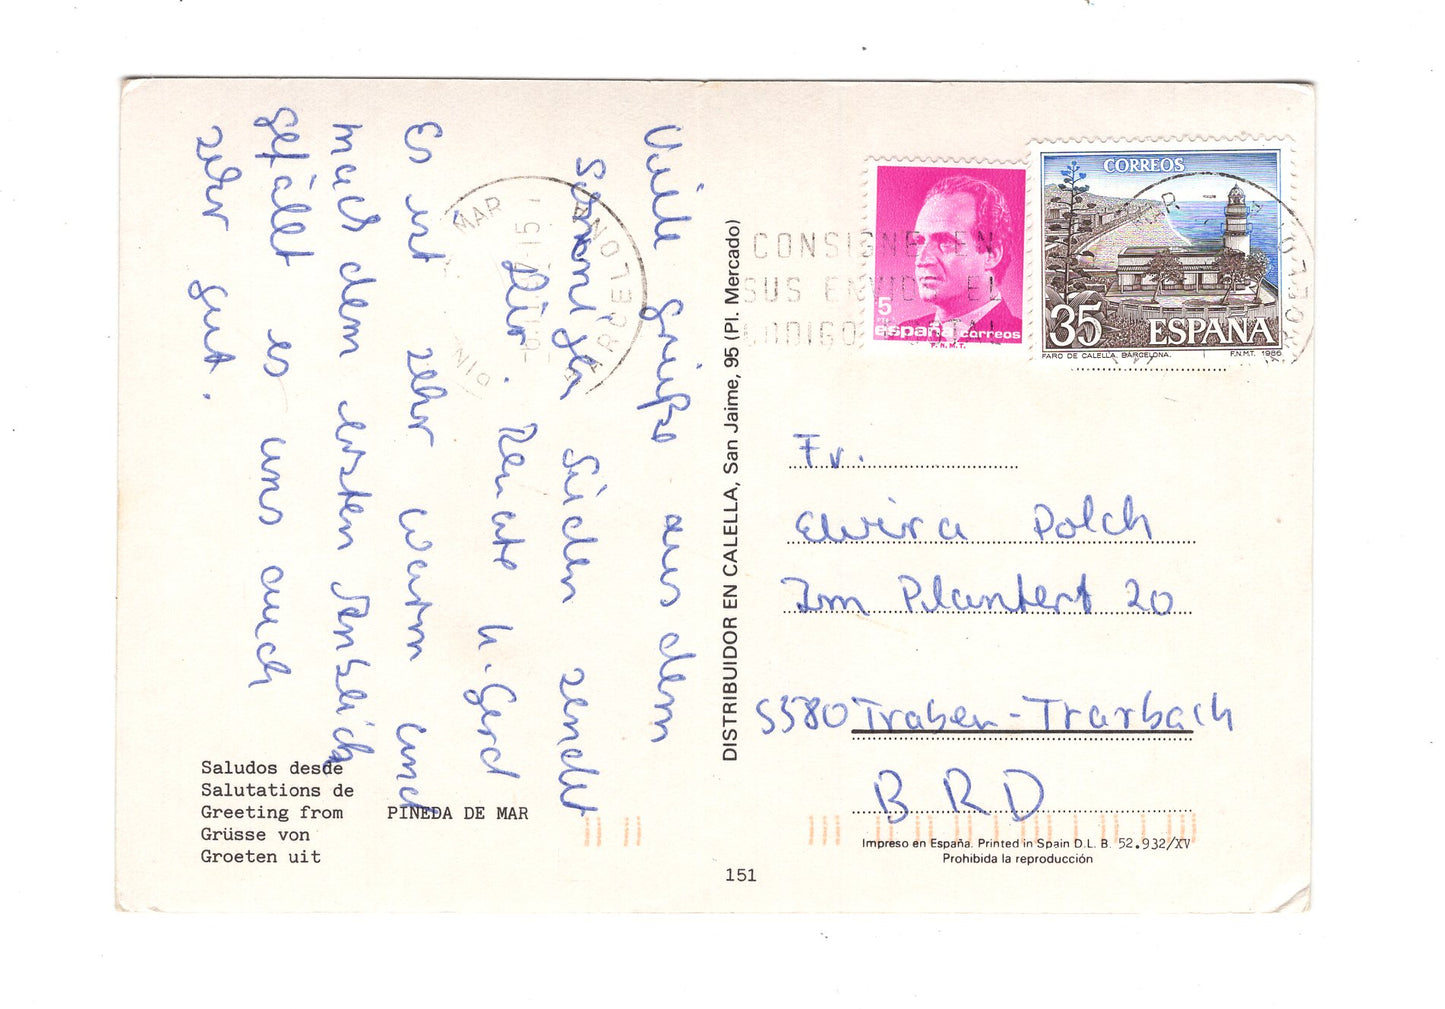 Viele Grüße aus dem
sonnigen Süden sendet
Dir. Renate u. Gerd
Es ist sehr warm und
nach dem ersten Anblick
gefällt es uns auch
sehr gut.
Saludos desde
Salutations de
Greeting from PINEDA DE MAR
Grüsse von
Groeten uit
DISTRIBUIDOR EN CALELLA, San Jaime, 95 (Pl. Mercado)
151
MAR
BARCELONA
PIN
CONSIGNE EN
SUS ENVIOS EL
CODIGO POSTAL
5
PTA
españa correos
F.N.M.T.
CORREOS
35 ESPAÑA
FARO DE CALELLA. BARCELONA. F.N.M.T. 1986
Fr.
Elvira Polch
Im Plantert 20
5580 Traben-Trarbach
BRD
Impreso en España. Printed in Spain D.L. B. 52.932/XV
Prohibida la reproducción